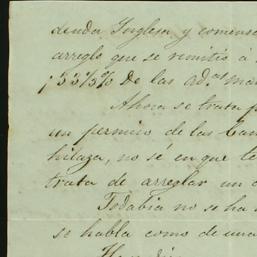 deuda Inglesa y comens
arreglo que se remitió á
33⅓% De las ad.as mar
Ahora se trata
un permiso de las Cam
hilaza, no sé en que te
trata de arreglar un
Todabia no se ha
se habla como de una